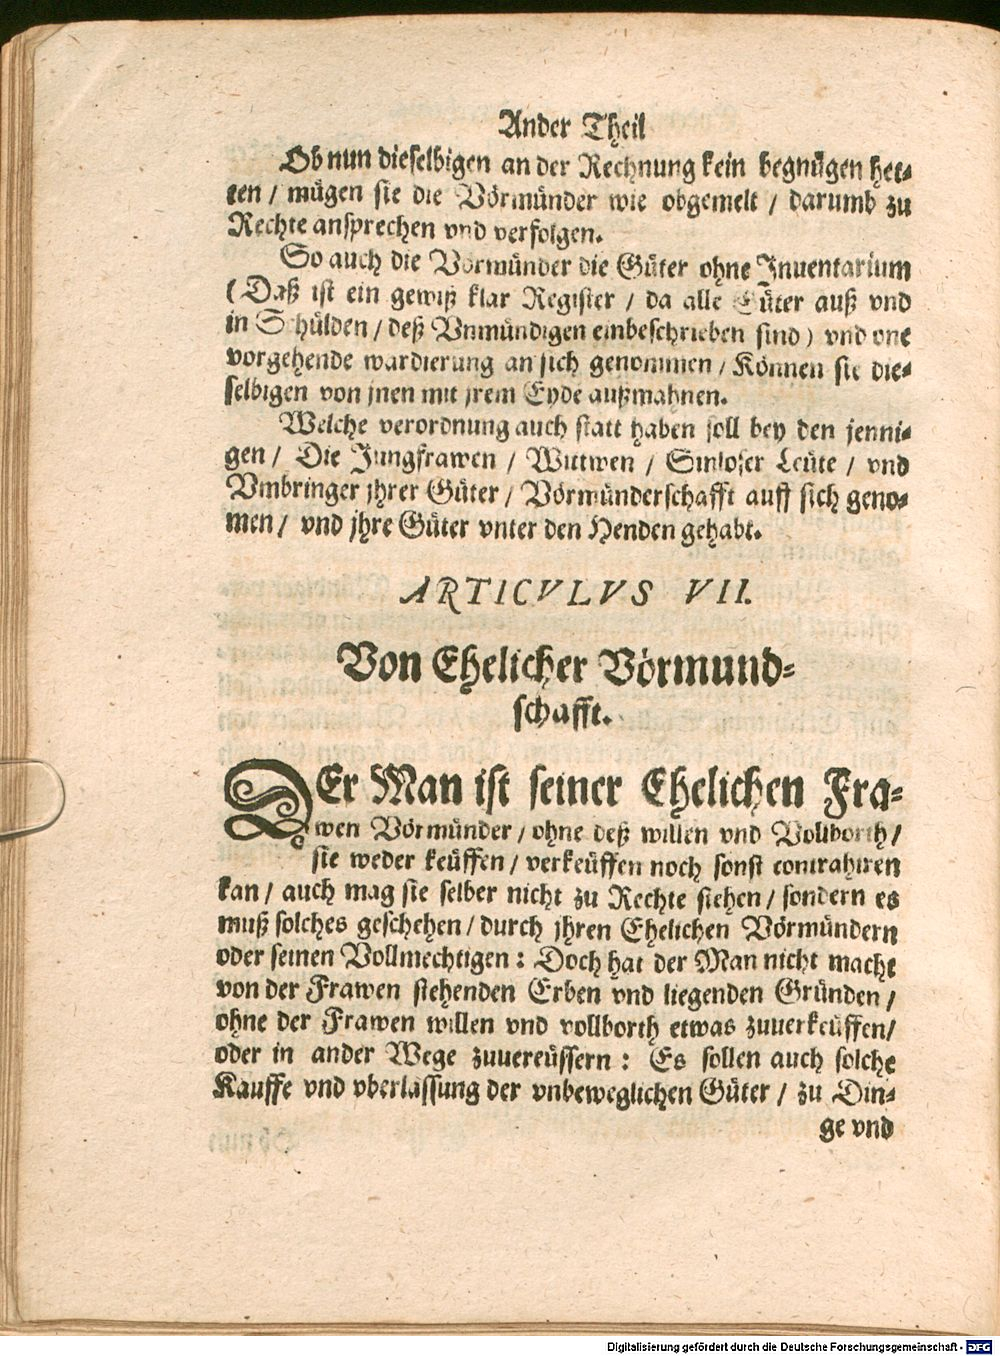 Ander Theil
Ob nun dieselbigen an der Rechnung kein begnügen het-
ten / mügen sie die Vörmünder wie obgemelt / darumb zu
Rechte ansprechen vnd verfolgen.
So auch die Vormünder die Güter ohne Inuentarium
(Daß ist ein gewiß klar Register / da alle Güter auß vnd
in Schülden / deß Vnmündigen einbeschrieben sind) vnd one
vorgehende wardierung an sich genommen / Können sie die-
selbigen von jnen mit jrem Eyde außmahnen.
Welche verordnung auch statt haben soll bey den jenni-
gen / Die Jungfrawen / Wittwen / Sinloser Leüte / vnd
Vmbringer jhrer Güter / Vörmünderschafft auff sich geno-
men / vnd jhre Güter vnter den Henden gehabt.
ARTICVLVS VII.
Von Ehelicher Vörmund-
schafft.
DEr Man ist seiner Ehelichen Fra-
wen Vörmünder / ohne deß willen vnd Vollborth /
sie weder keüffen / verkeüffen noch sonst contrahiren
kan / auch mag sie selber nicht zu Rechte stehen / sondern es
muß solches geschehen / durch jhren Ehelichen Vörmündern
oder seinen Vollmechtigen : Doch hat der Man nicht macht
von der Frawen stehenden Erben vnd liegenden Gründen /
ohne der Frawen willen vnd vollborth etwas zuuerkeüffen /
oder in ander Wege zuuereüssern : Es sollen auch solche
Kauffe vnd vberlassung der vnbeweglichen Güter / zu Din-
ge vnd
Digitalisierung gefördert durch die Deutsche Forschungsgemeinschaft - DFG